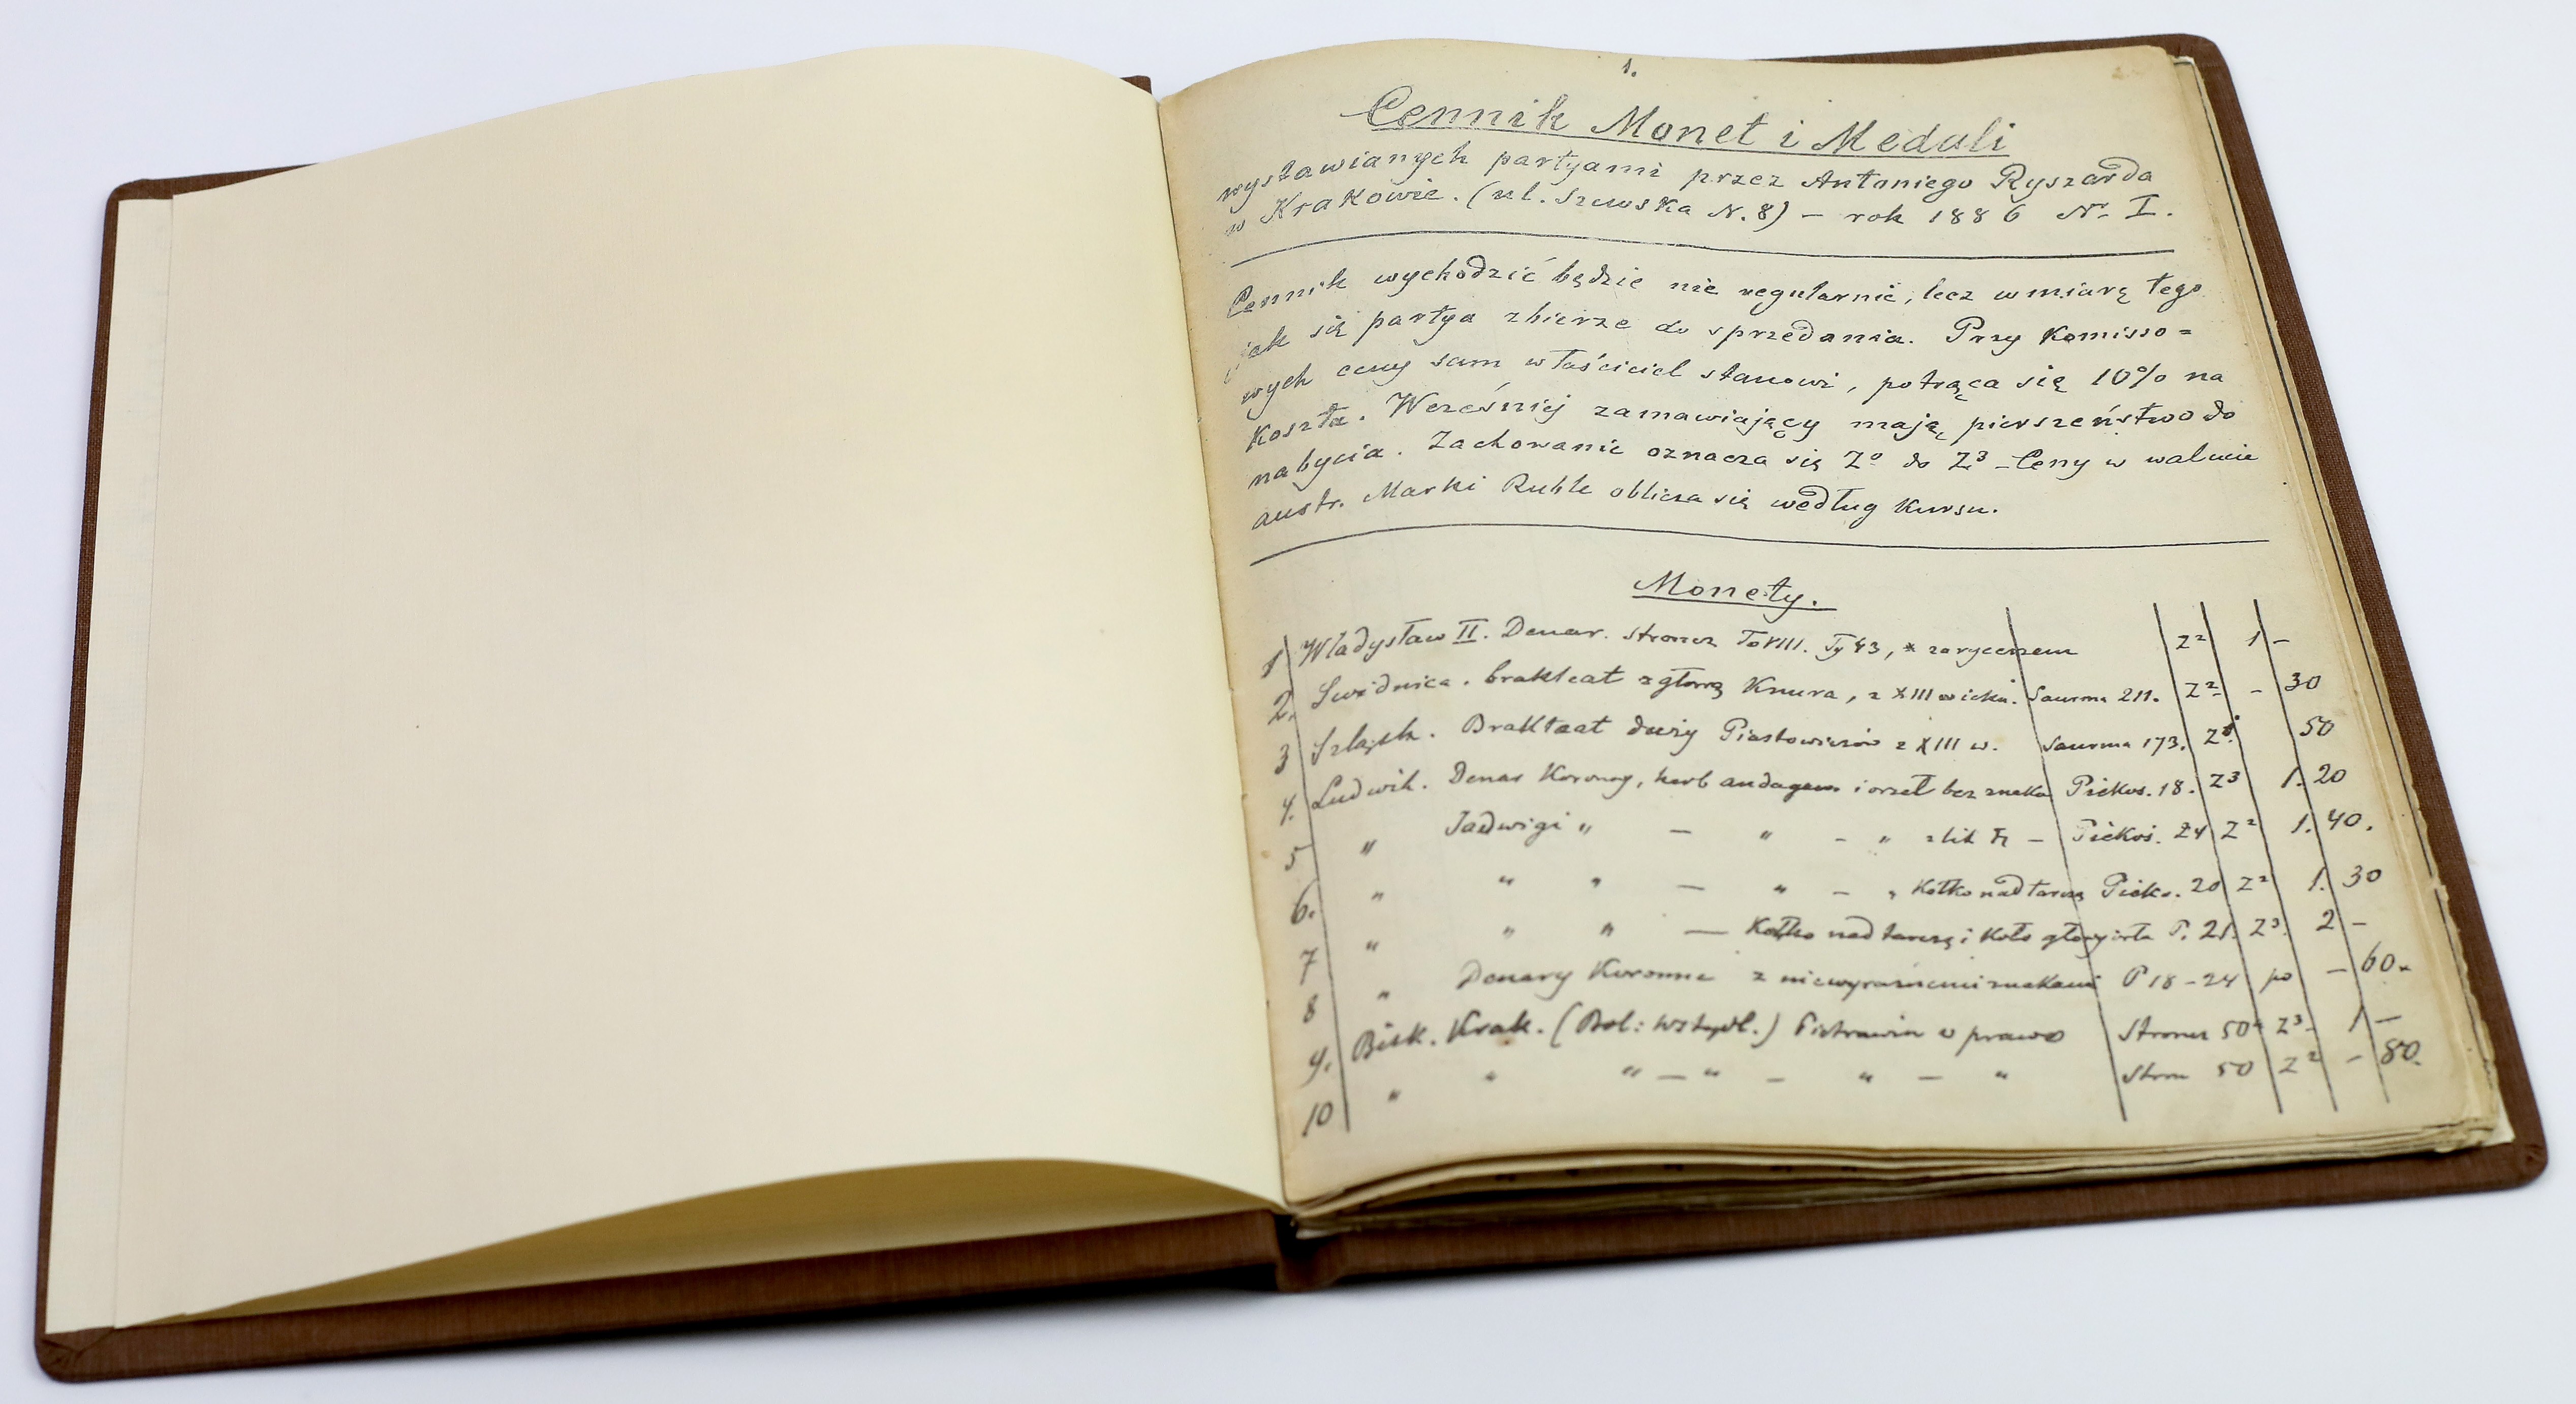 1.
Cennik Monet i Medali
wystawianych partyami przez Antoniego Ryszarda
w Krakowie. (ul. Szewska N. 8) – rok 1886 Nr. I.
Cennik wychodzić będzie nie regularnie, lecz w miarę tego
jak się partya zbierze do sprzedania. Przy Komisso=
wych ceny sam właściciel stanowi, potrąca się 10% na
Koszta. Wcześniej zamawiający mają pierszeństwo do
nabycia. Zachowanie oznacza się Z⁰ do Z³ – Ceny w walucie
austr. Marki Ruble oblicza się według Kursu.
Monety.
1 Władysław II. Denar. Stroncz. 43, * za rycerzem Z² 1 –
2. Swidnica. brakteat z głową Knura, z XIII wieku. Saurma 211. Z² – 30
3 Szląsk. Brakteat duży Piastowiczów z XIII w. Saurma 173. 50
4. Ludwik. Denar Koronny, herb andegaw. i orzeł bez znaku Piekos. 18. Z³ 1. 20
5 " Jadwigi " – " – " z lit – Piekos. 24 Z² 1. 40.
6. " " " – " – " Kółko nad tarczą Pieko. 20 Z² 1. 30
7 " " " — Kółko nad tarczą i Koło głowy orła P. 21. Z³. 2 –
8 " Denary Koronne z niewyraźnemi znakami P 18 – 24 po – 60.
9. Bisk. Krak. (Bol: Wstydl.) Piotrawin w prawo Stroncz 50 Z³ – 1 –
10 " " " – " – " – " Stron 50 Z² – 80.